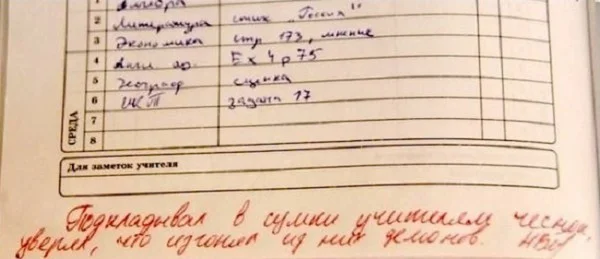 1 Алгебра
2 Литература стих „Гоголя"
3 Экономика стр 173, мнение
4 Англ. яз. Ex 4 p 75
5 Географ сценка
6 ИКТ задача 17
7
8
СРЕДА
Для заметок учителя
Подкладывал в сумки учителям чеснок,
уверял, что изгонял из них демонов.